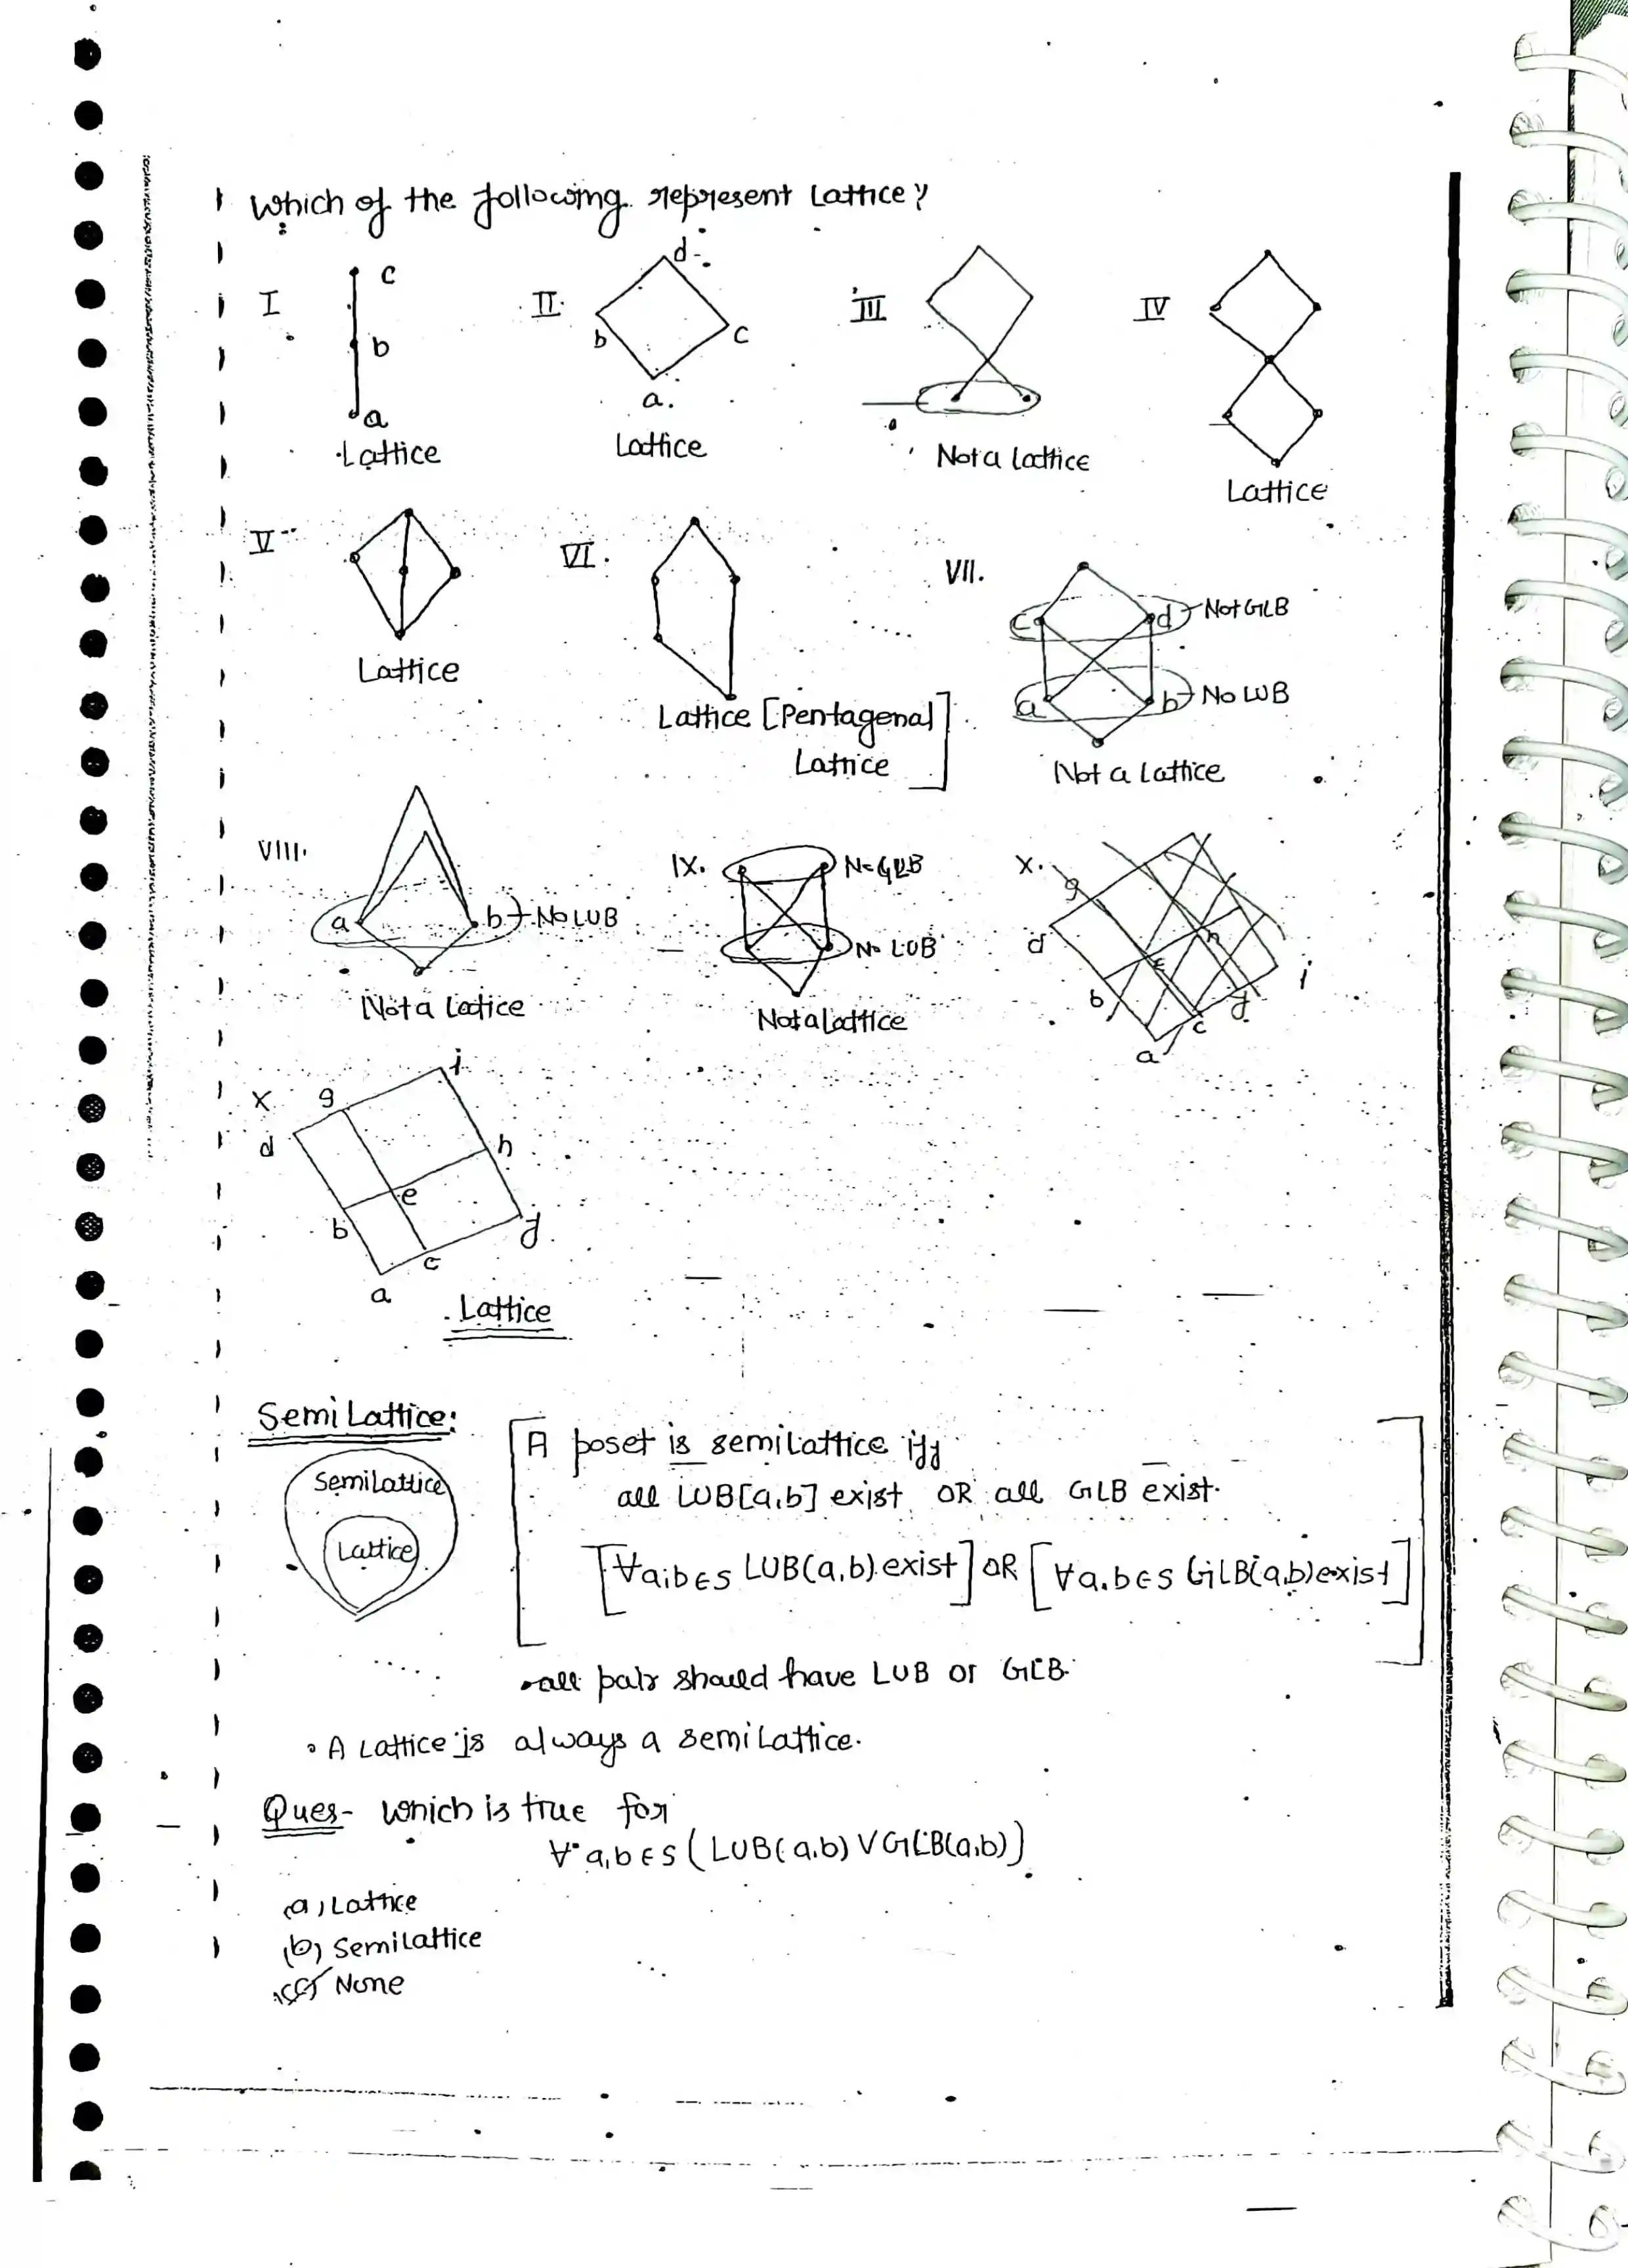 Which of the following represent Lattice?
I c b a Lattice
II. d b c a. Lattice
III Not a lattice
IV Lattice
V Lattice
VI. Lattice [Pentagenal Lattice]
VII. c d Not GLB a b No LUB Not a Lattice
VIII. a b No LUB Not a Lattice
IX. No GLB No LUB Not a Lattice
X. g d b a c f i h E
X g i d h e b f c a
Lattice
Semi Lattice:
SemiLattice
Lattice
A poset is semilattice iff
all LUB[a,b] exist OR all GLB exist.
[∀a,b∈S LUB(a,b) exist] OR [∀a,b∈S GLB(a,b) exist]
•all pair should have LUB or GLB.
• A Lattice is always a semilattice.
Ques- which is true for
∀ a,b ∈ S (LUB(a,b) ∨ GLB(a,b))
(a) Lattice
(b) Semilattice
(c) None